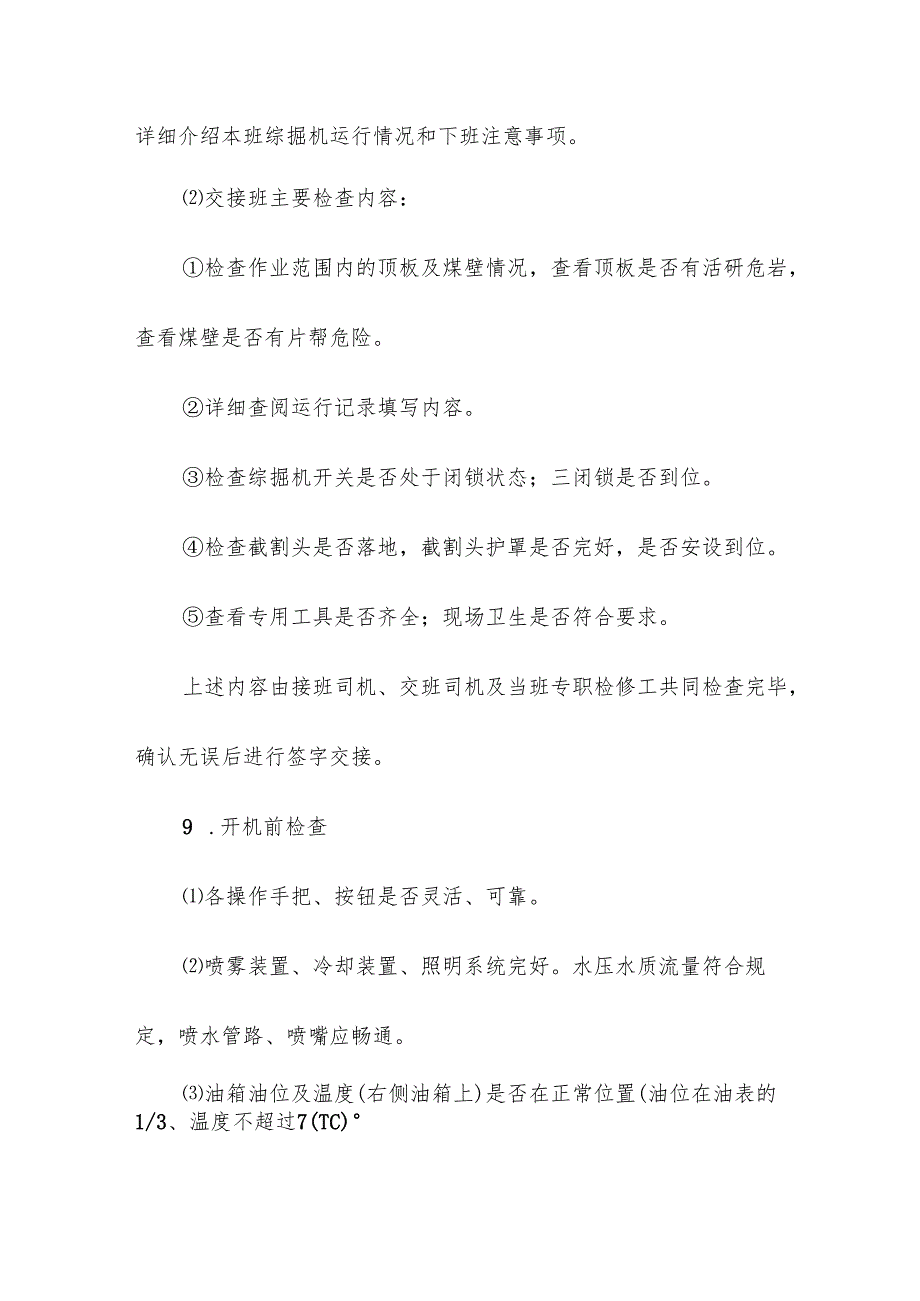 详细介绍本班综掘机运行情况和下班注意事项。
⑵交接班主要检查内容：
①检查作业范围内的顶板及煤壁情况，查看顶板是否有活研危岩，
查看煤壁是否有片帮危险。
②详细查阅运行记录填写内容。
③检查综掘机开关是否处于闭锁状态；三闭锁是否到位。
④检查截割头是否落地，截割头护罩是否完好，是否安设到位。
⑤查看专用工具是否齐全；现场卫生是否符合要求。
上述内容由接班司机、交班司机及当班专职检修工共同检查完毕，
确认无误后进行签字交接。
9 .开机前检查
⑴各操作手把、按钮是否灵活、可靠。
⑵喷雾装置、冷却装置、照明系统完好。水压水质流量符合规
定，喷水管路、喷嘴应畅通。
⑶油箱油位及温度(右侧油箱上)是否在正常位置(油位在油表的
1/3、温度不超过7(TC)°